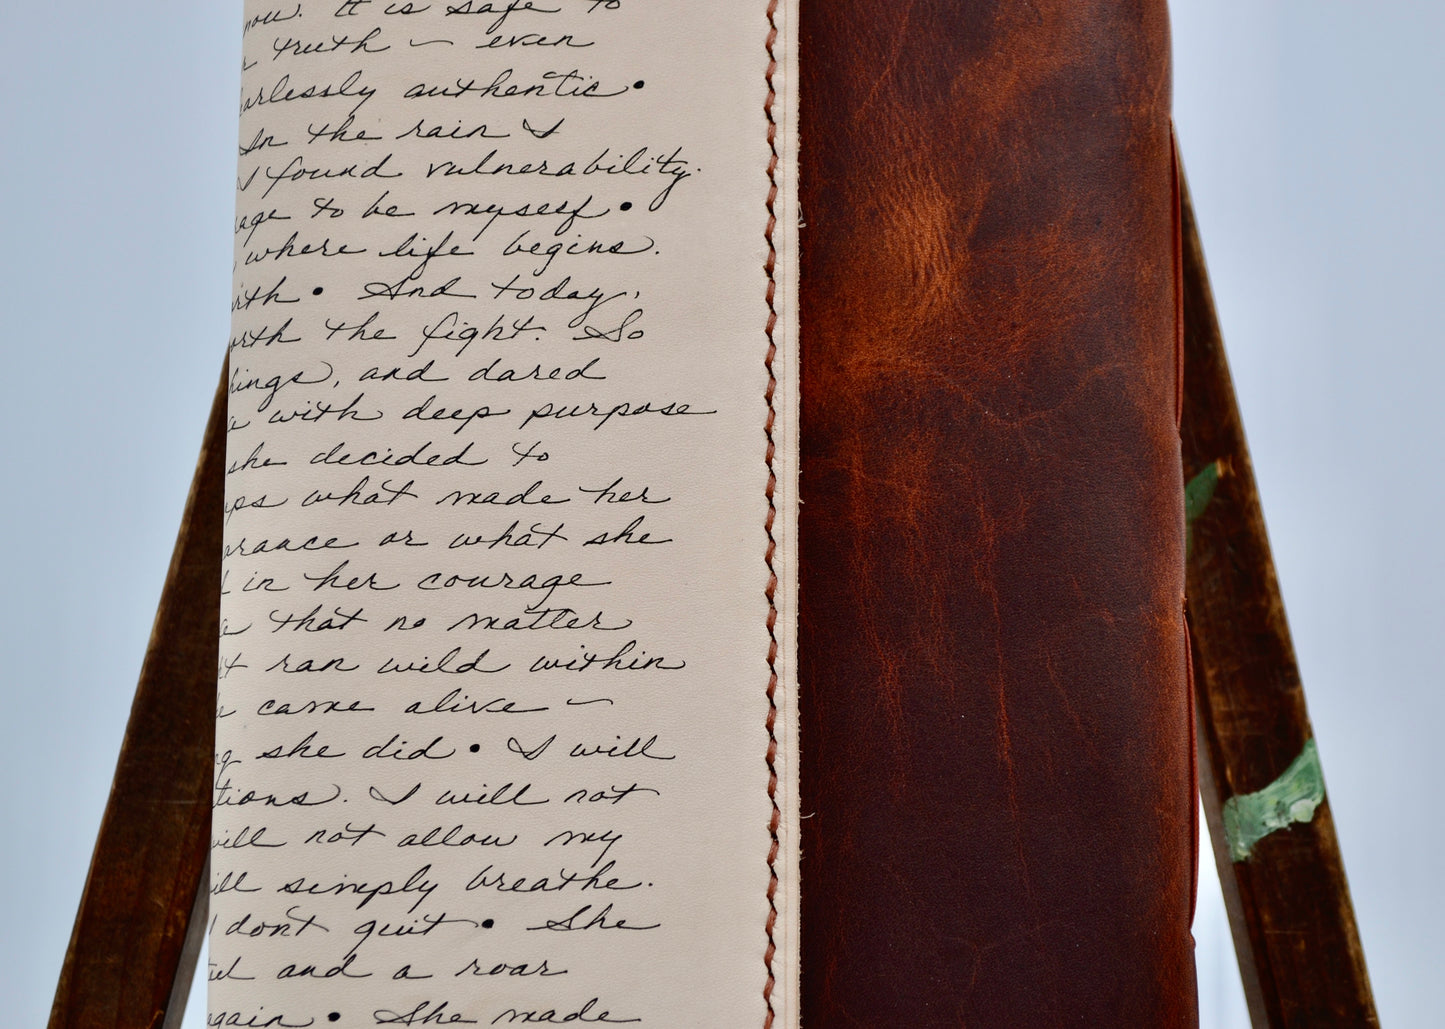 now. It is safe to
truth — even
fearlessly authentic •
In the rain I
I found vulnerability.
to be myself •
where life begins.
• And today,
worth the fight. So
things, and dared
with deep purpose
she decided to
what made her
or what she
in her courage
that no matter
ran wild within
came alive —
she did • I will
I will not
will not allow my
will simply breathe.
I don't quit • She
and a roar
again • She made